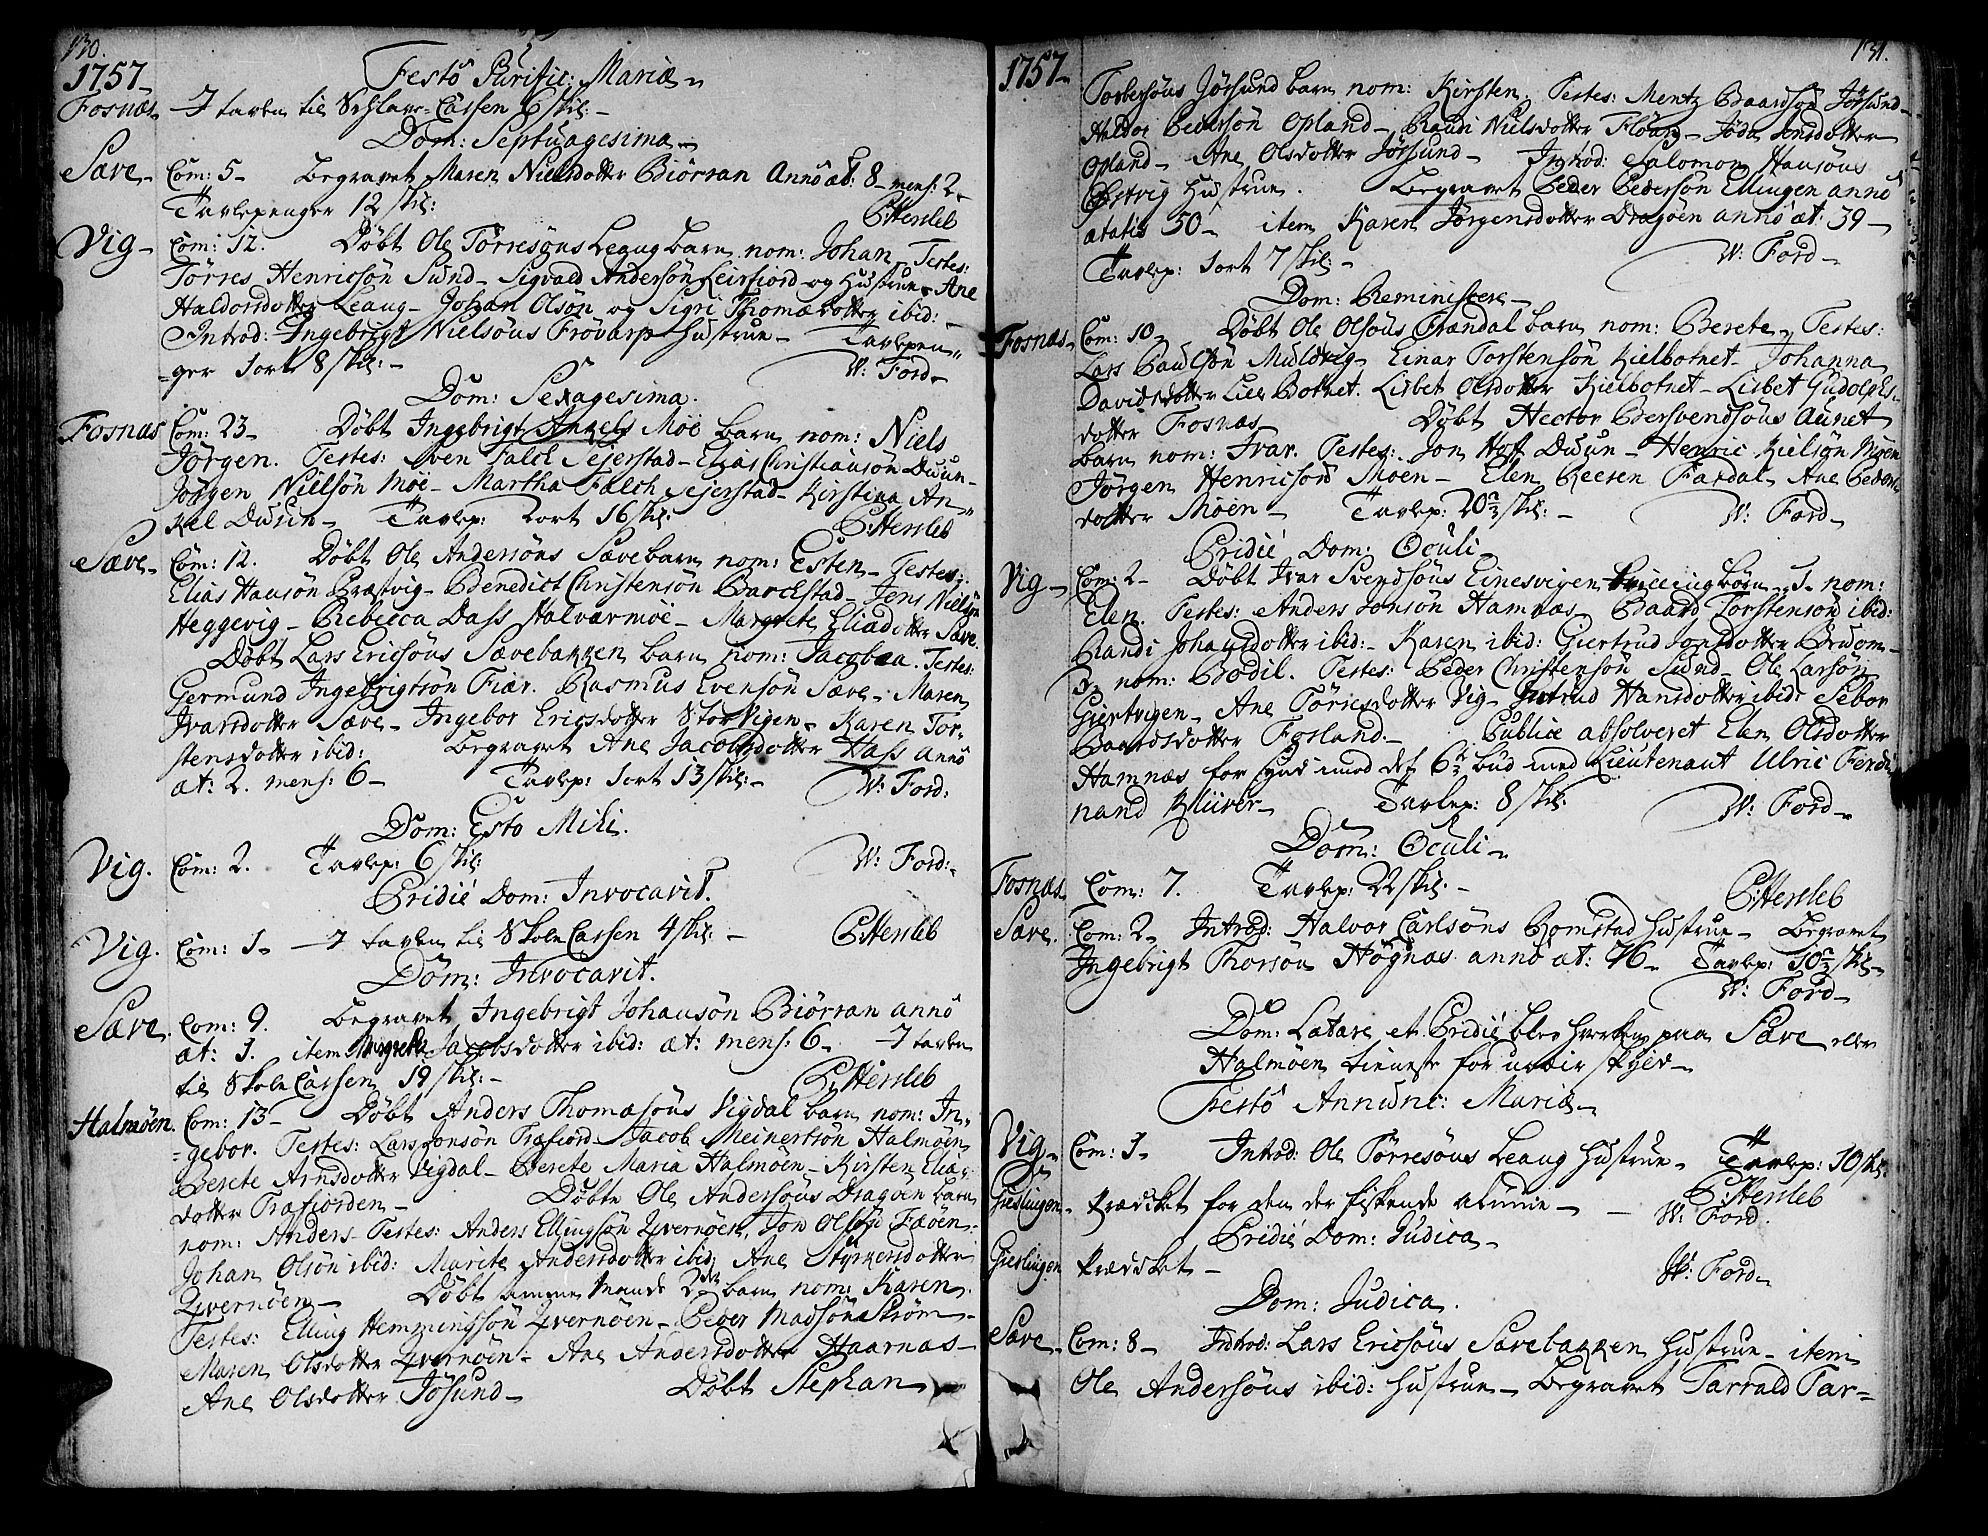 130.
1757
Festo Purific: Mariæ
Fosnæs I tavlen til Cassen 6 skil:
Dom: Septuagesima
Sæve Com: 5 Begravet Maren Nielsdotter Biörran Anno æt: 8 mens: 2
Tavlepenger 12 skil: C: Hersleb
Vig Com: 12. Döbt Ole Törresöns Leaug barn nom: Johan Testes:
Törres Henricsön Sund Sigvald Andersön Leirfiord og Hustrue Ane
Haldorsdotter Leaug Johan Olsön og Sigri Thomædotter ibid:
Introd: Ingebrigt Nielsöns Frövarp Hustrue Tavlepen
ger 1ort 8 skil: W: Ford
Dom: Sexagesima.
Fosnæs Com: 23 Döbt Ingebrigt Angels Möe barn nom: Niels
Jörgen. Testes: Sven Falch Sejerstad Elias Christiansön Duun
Jörgen Nielsön Möe Martha Falch Sejerstad Kirstina An
kel Duun Tavlep: 2ort 16 skil: C: Hersleb
Sæve Com: 12. Döbt Ole Andersöns Sæve barn nom: Esten Testes:
Elias Hansön Præstvig Benedict Christensön Barckstad Jens Nielsön
Heggevig Rebecca Dass Halvarmöe Margrete Eliædotter Sæve.
Döbt Lars Ericsöns Sævebakken barn nom: Jacobæa. Testes:
Germund Ingebrigtsön Fiær. Rasmus Evensön Sæve Maren
Ivarsdotter Sæve Ingebor Ericsdotter Storvigen Karen Tor
stensdotter ibid: Begravet Ane Jacobsdotter Hass anno
æt: 2. mens: 6 Tavlep: 1ort 13 skil: W: Ford:
Dom: Esto Mihi.
Vig. Com: 2. Tavlep: 6 skil: W: Ford:
Pridiè Dom: Invocavit.
Vig. Com: 1 I tavlen til Skole Cassen 4 skil: C: Hersleb
Dom: Invocavit.
Sæve Com: 9. Begravet Ingebrigt Johansön Biörran anno
æt: 1. item Margreta Jacobsdotter ibid: æt: mens: 6 I tavlen
til Skole Cassen 19 skil: C: Hersleb
Halmöen. Com: 13 Döbt Anders Thomæsöns Vigdal barn nom: In
gebor. Testes: Lars Jonsön Træfiord Jacob Meinertsön Halmöen
Berete Arnsdotter Vigdal Berete Maria Halmöen Kirsten Eliæ
dotter Træfiorden Döbte Ole Andersöns Dragöen barn
nom: Anders Testes: Anders Ellingsön Qvernöen, Jon Olsön Fæöen
Johan Olsön ibid: Marite Andersdotter ibid: Ane Styrkersdotter
Qvernöen Döbt samme Mands 2det barn nom: Karen
Testes: Elling Hemmingsön Qvernöen Peder Madsön Ström
Maren Olsdotter Qvernöen Ane Andersdotter Haarnæs
Ane Olsdotter Jösund Döbt Stephan
131.
1757
Torbersöns Jörsund barn nom: Kirsten. Testes: Mentz Baardsön Jörsund
Haldor Pedersön Opland Randi Nielsdotter Flöan Joda Jonsdotter
Opland Ane Olsdotter Jörsund Introd: Salomon Hansöns
Östvig Hustrue. Begravet Peder Pedersön Ellingen anno
ætatis 50 item Karen Jörgensdotter Dragöen anno æt: 39
Tavlep: 1ort 7 skil: W: Ford
Dom: Reminiscere
Fosnæs Com: 10 Döbt Ole Olsöns Frændal barn nom: Berete Testes:
Lars Paulsön Mulvig Einar Torstensön Kielbotnet Johanna
Davidsdotter Lier Botnet. Lisbet Olsdotter Kielbotnet Lisbet Gudolphs
dotter Fosnæs Döbt Hector Bersvendsöns Aunet
barn nom: Ivar. Testes: Jon Hoff Duun Henric Kielsön Möen
Jörgen Henricsön Moen Elen Reersen Fardal Ane Peders
dotter Möen Tavlep: 20½ skil: W: Ford
Pridiè Dom: Oculi
Vig Com: 2 Döbt Ivar Svendsöns Einesvigen tvillingbörn 1. nom:
Elen. Testes: Anders Jonsön Hamnæs Baard Torstensön ibid:
Randi Johansdotter ibid: Karen ibid: Giertrud Jonsdotter Bruom
2. nom: Bodil. Testes: Peder Christensön Sund Ole Larsön
Giertvigen Ane Törresdotter Vig Giertrud Hansdotter ibid: Sebor
Baardsdotter Fosland. Publice absolveret Elen Olsdotter
Hamnæs for synd imod det 6te bud med Lieutenant Ulric Ferdi
nand Klüver Tavlep: 8 skil: W: Ford
Dom: Oculi
Fosnæs Com: 7. Tavlep: 22 skil: C: Hersleb
Sæve. Com: 2 Introd: Halvor Carlsöns Romstad Hustrue Begravet
Ingebrigt Thorsön Högnæs anno æt: 76 Tavlep: 10½ skil:
W: Ford
Dom: Lætare et Pridiè blev hverken paa Sæve eller
Halmöen tieneste for uveir skyld
Festo Annunc: Mariæ
Vig Com: 1 Introd: Ole Törresöns Leaug Hustrue Tavlep: 10 skil:
C: Hersleb
Gieslingen Prædiket for den der fiskende almue W: Ford.
Pridiè Dom: Judica
Gieslingen Prædiket W: Ford
Dom: Judica.
Sæve Com: 8 Introd: Lars Ericsöns Sævebakken Hustrue item
Ole Andersöns ibid: Hustrue Begravet Tarrald Tar=